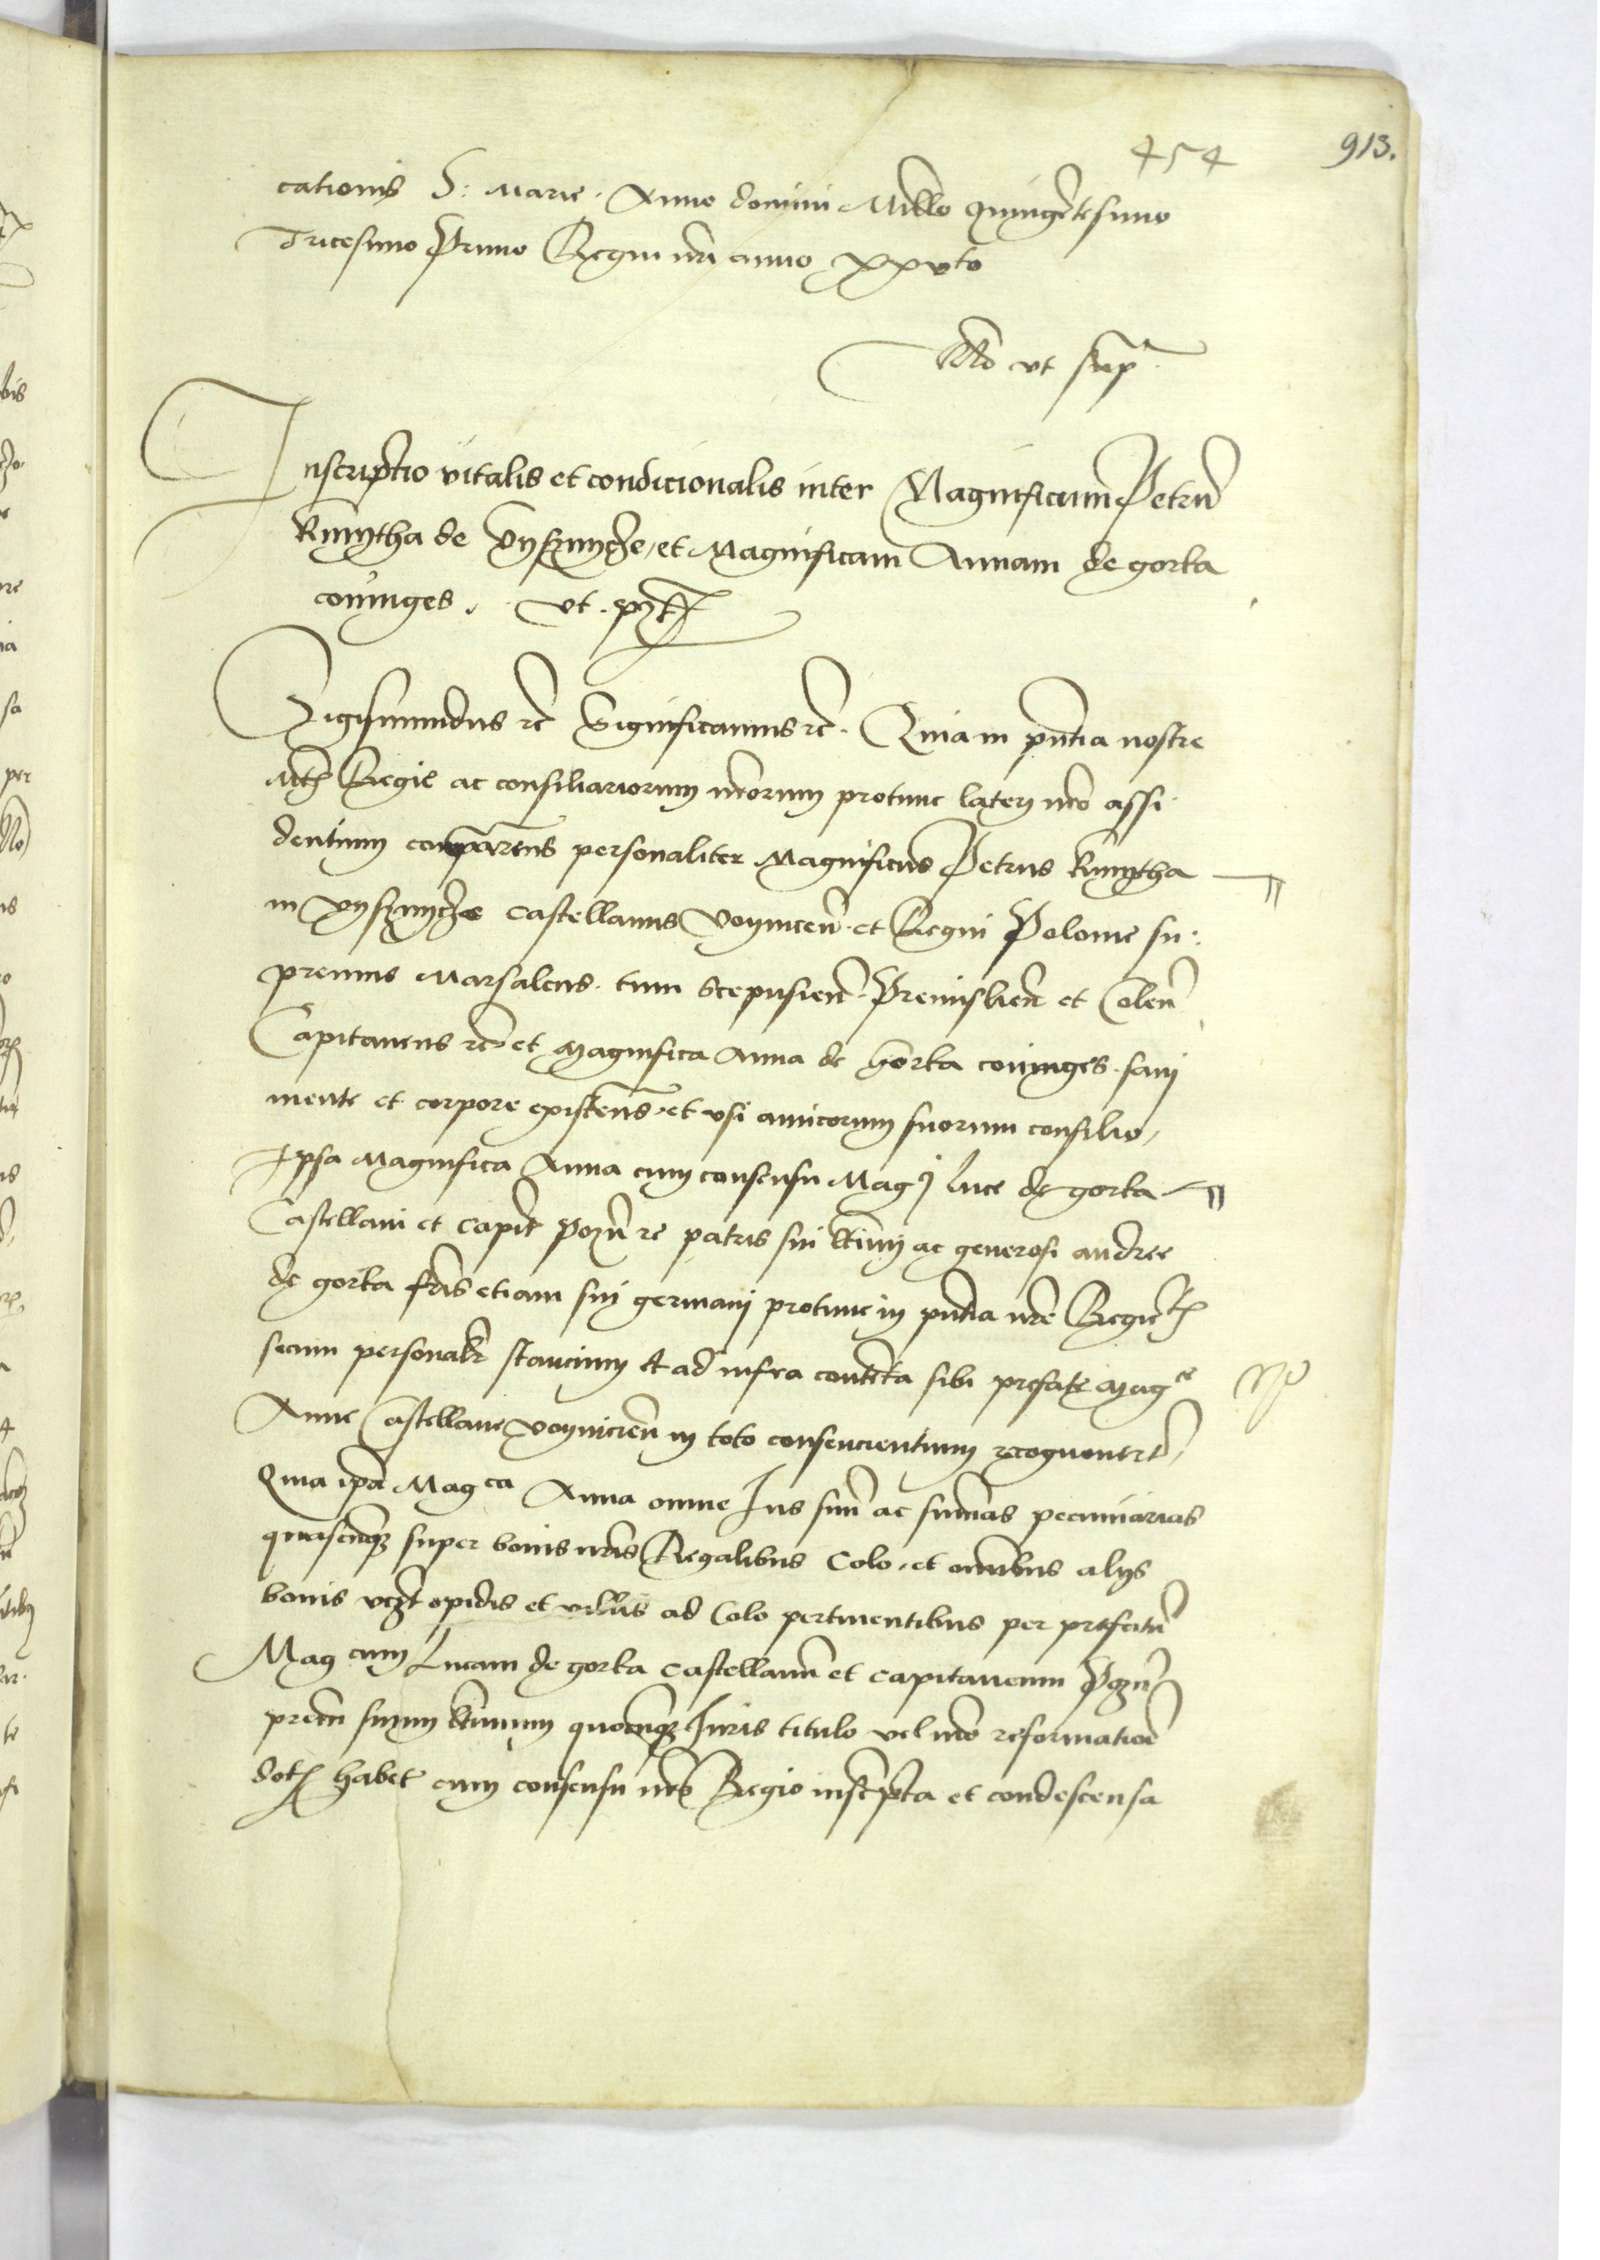 454
913.
cationis S: Marie. Anno domini Millo quingetesimo
Tricesimo Primo Regni nri anno xxvto
Rlo ut supra
Inscriptio vitalis et condicionalis inter Magnificum Petrum
Kmytha de Vysznycze, et Magnificam Annam de gorka
coniuges. ut. pzt
Sigismundus rc Significamus rc. Quia in pntia nostre
Mtis Regie ac consiliariorum nrorum protunc lateri nro assi
dentium comparens personaliter Magnificus Petrus Kmytha
in Vysznycze castellanus Voynicen. et Regni Polonie su:
premus Marsalcus. tum Scepusien. Premislien et Colen
Capitaneus rc et Magnifica Anna de Gorka coniuges. sani
mente et corpore existens. et usi amicorum suorum consilio,
Ipsa Magnifica Anna cum consensu Magci Luce de gorka
Castellani et capit Pozn rc patris sui ac generosi andree
de gorka fris etiam sui germani protunc in pntia nre Regie Mtis
secum personalr stancium et ad infra contenta sibi prefate Magce
Anne Castellane Voynicien in toto consencientium recognouert,
Quia ipa Magca Anna omne Ius suum ac summas pecuniarias
quascunqz super bonis nris Regalibus Colo. et omnibus alijs
bonis vczt opidis et villis ad Colo pertinentibus per prefatum
Magcum Lucam de gorka castellanum et capitaneum Pozn
prem suum quocunqz Iuris titulo vel nro reformationis
dotis habet cum consensu nro Regio inscripta et condescensa